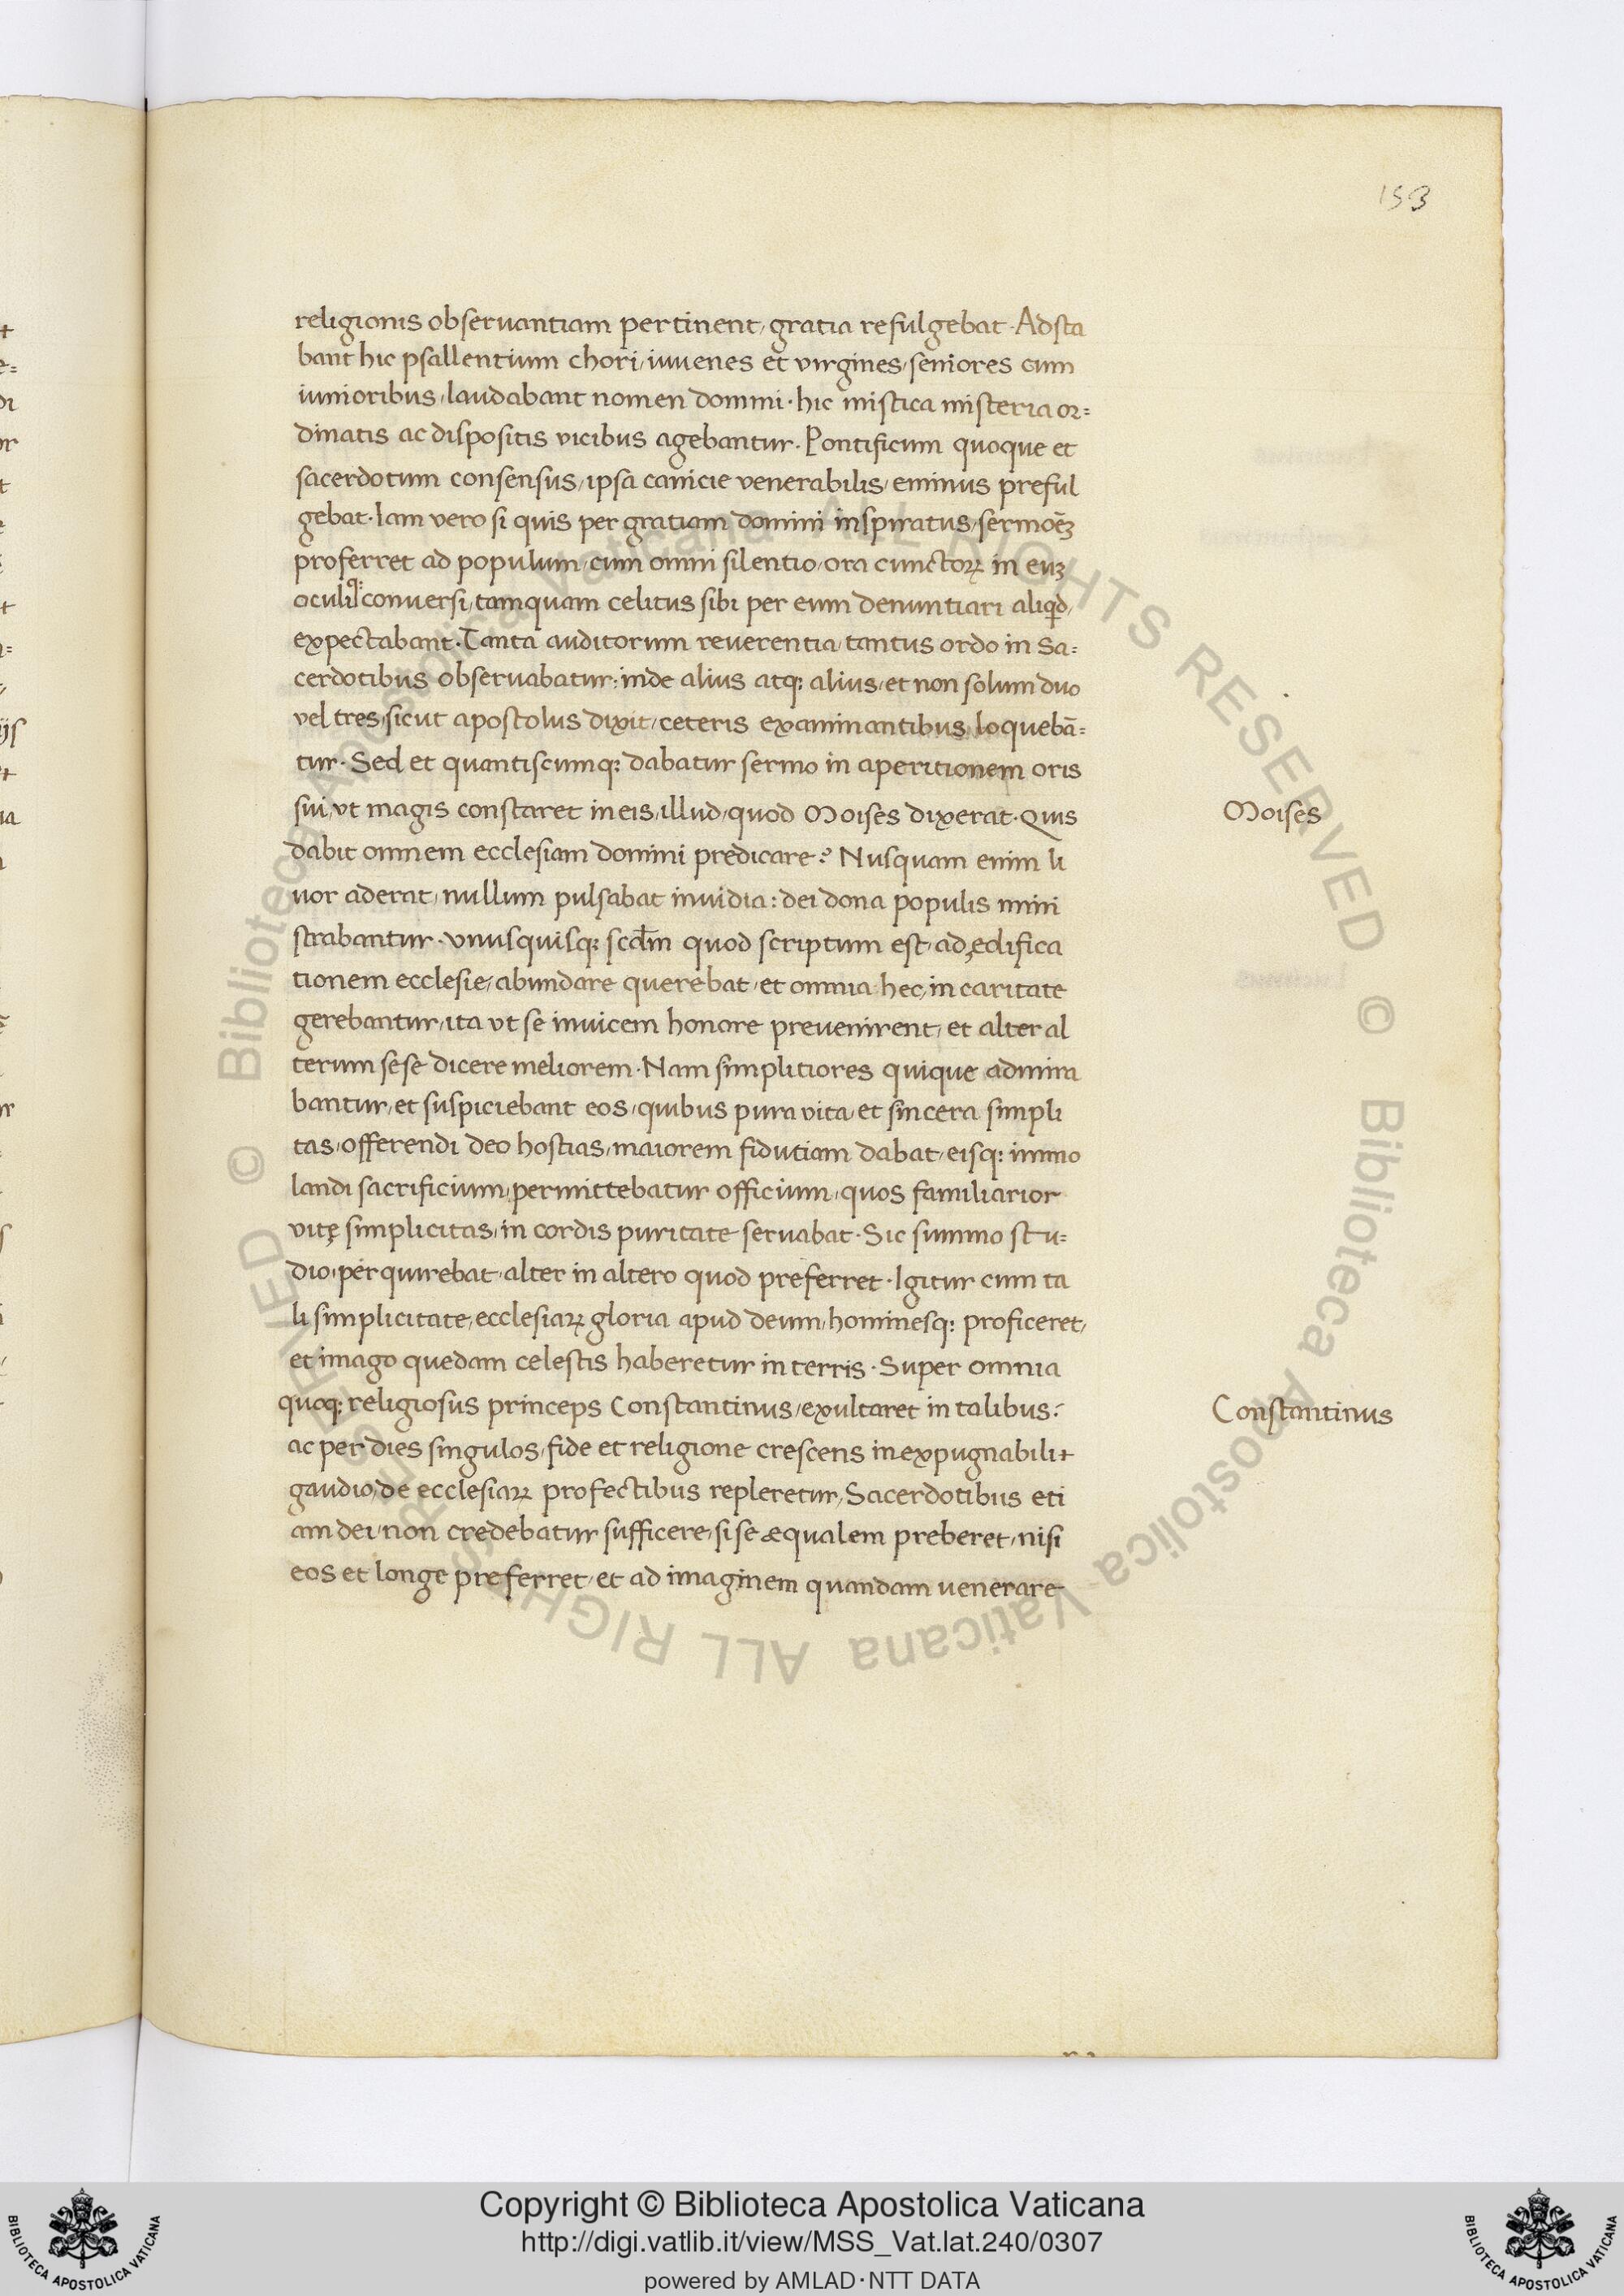 153
religionis observantiam pertinent, gratia refulgebat. Adsta
bant hic psallentium chori, iuuenes et virgines, seniores cum
iunioribus, laudabant nomen domini. hic mistica misteria or=
dinatis ac dispositis vicibus agebantur. Pontificum quoque et
sacerdotum consensus, ipsa canicie venerabilis, eminus preful
gebat. Iam vero si quis per gratiam domini inspiratus, sermoēꝫ
proferret ad populum, cum omni silentio, ora cunctoꝝ in euꝫ
oculiqꝫ conuersi, tamquam celitus sibi per eum denuntiari aliqd,
expectabant. Tanta auditorum reuerentia, tantus ordo in Sa=
cerdotibus observabatur: inde alius atqꝫ alius, et non solum duo
vel tres, sicut apostolus dixit, ceteris examinantibus, loquebā=
tur. Sed et quantiscumqꝫ dabatur sermo in aperitionem oris
sui, vt magis constaret in eis, illud, quod Moises dixerat. Quis
dabit omnem ecclesiam domini predicare? Nusquam enim li
uor aderat, nullum pulsabat inuidia: dei dona populis mini
strabantur. vnusquisqꝫ scd̄m quod scriptum est, ad ędifica
tionem ecclesie, abundare querebat, et omnia hec, in caritate
gerebantur, ita vt se inuicem honore preuenirent, et alter al
terum sese dicere meliorem. Nam simplitiores quique admira
bantur, et suspiciebant eos, quibus pura vita, et sincera simpli
tas, offerendi deo hostias, maiorem fidutiam dabat, eisqꝫ immo
landi sacrificium, permittebatur officium, quos familiarior
vitę simplicitas, in cordis puritate seruabat. Sic summo stu=
dio, perquirebat, alter in altero quod preferret. Igitur cum ta
li simplicitate, ecclesiaꝝ gloria apud deum, hominesqꝫ proficeret,
et imago quedam celestis haberetur in terris. Super omnia
quoqꝫ religiosus princeps Constantinus, exultaret in talibus:
ac per dies singulos, fide et religione crescens inexpugnabili
gaudio, de ecclesiaꝝ profectibus repleretur, Sacerdotibus eti
am dei, non credebatur sufficere, si se æqualem preberet, nisi
eos et longe preferret, et ad imaginem quandam uenerare
Moises
Constantinus
© Biblioteca Apostolica Vaticana ALL RIGHTS RESERVED © Biblioteca Apostolica Vaticana ALL RIGHTS RESERVED
BIBLIOTECA APOSTOLICA VATICANA
Copyright © Biblioteca Apostolica Vaticana
http://digi.vatlib.it/view/MSS_Vat.lat.240/0307
powered by AMLAD·NTT DATA
BIBLIOTECA APOSTOLICA VATICANA